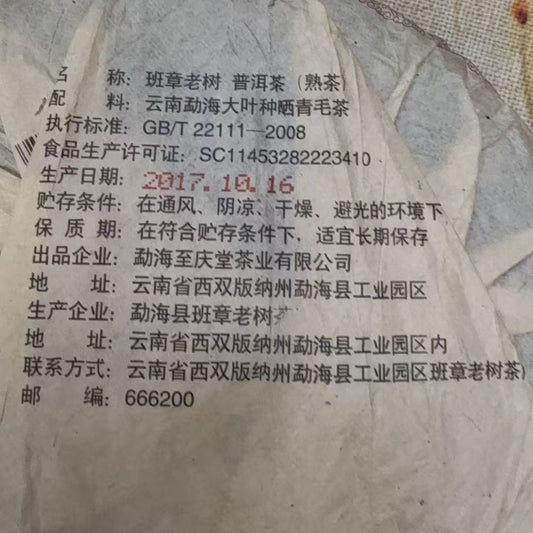 名 称：班章老树 普洱茶（熟茶）
配 料：云南勐海大叶种晒青毛茶
执行标准：GB/T 22111—2008
食品生产许可证：SC11453282223410
生产日期：2017.10.16
贮存条件：在通风、阴凉、干燥、避光的环境下
保 质 期：在符合贮存条件下，适宜长期保存
出品企业：勐海至庆堂茶业有限公司
地 址：云南省西双版纳州勐海县工业园区
生产企业：勐海县班章老树
地 址：云南省西双版纳州勐海县工业园区内
联系方式：云南省西双版纳州勐海县工业园区班章老树茶）
邮 编：666200